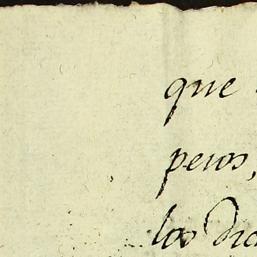 que
pesos,
los dic